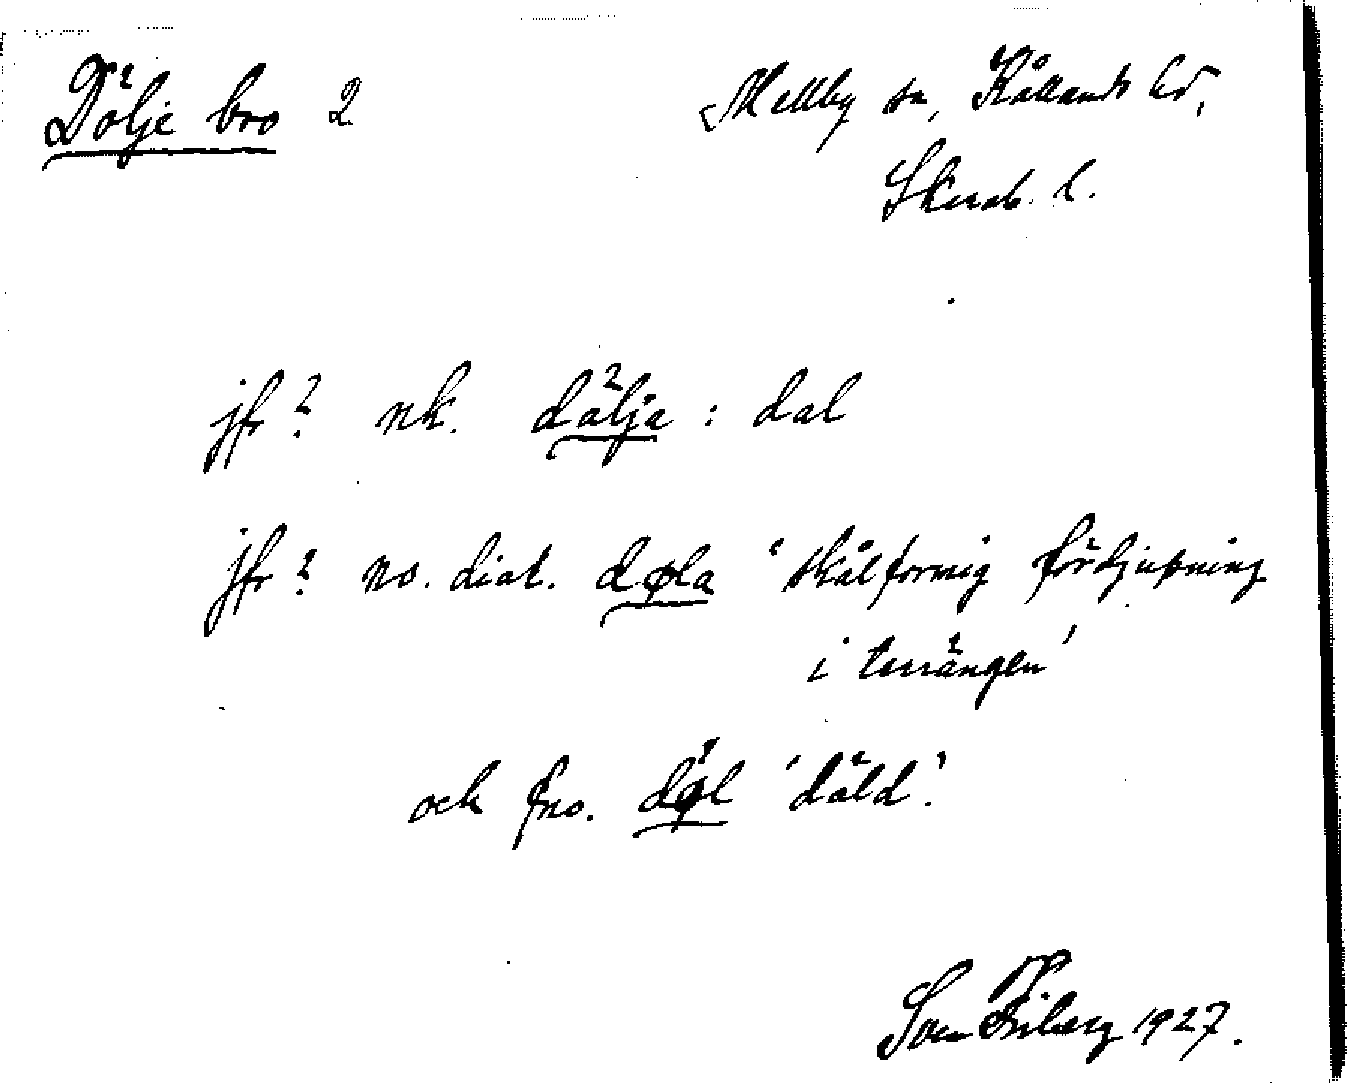 Dölje bro 2
Mellby sn, Kållands hd,
Skarab. l.
jfr? nk. dälja : dal
jfr? no. dial. døla 'skålformig fördjupning
i terrängen'
och fno. dǿl 'däld'.
Sven Friberg 1927.